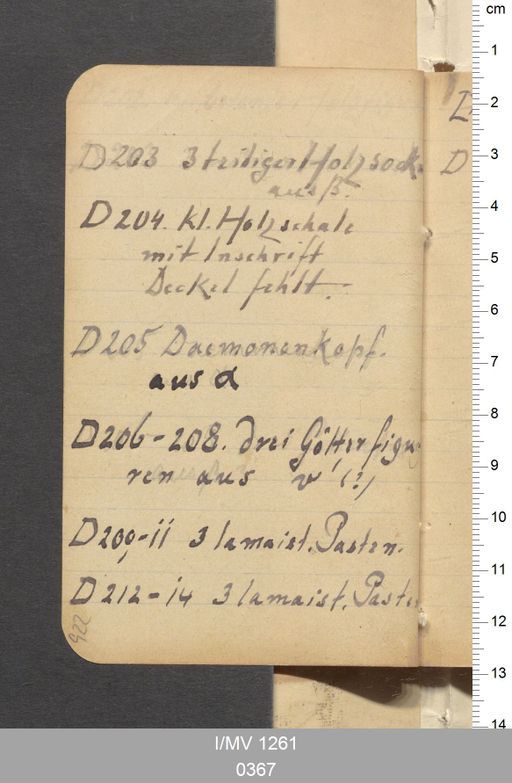 D203 3 teiliger Holzsock
aus β.
D204. Kl. Holzschale
mit Inschrift
Deckel fehlt.-
D205 Daemonenkopf.
aus α
D206-208. drei Götterfigu
ren aus v (?)
D209-11 3 lamaist. Pasten.
D212-14 3 lamaist. Paste
922
D
cm
1
2
3
4
5
6
7
8
9
10
11
12
13
14
I/MV 1261
0367